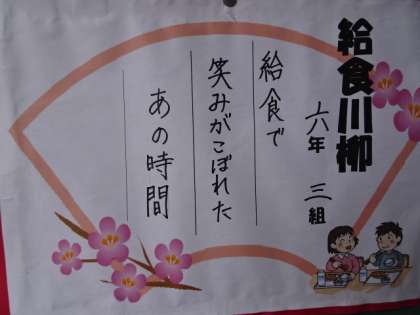 給食川柳
六年 三組
給食で
笑みがこぼれた
あの時間